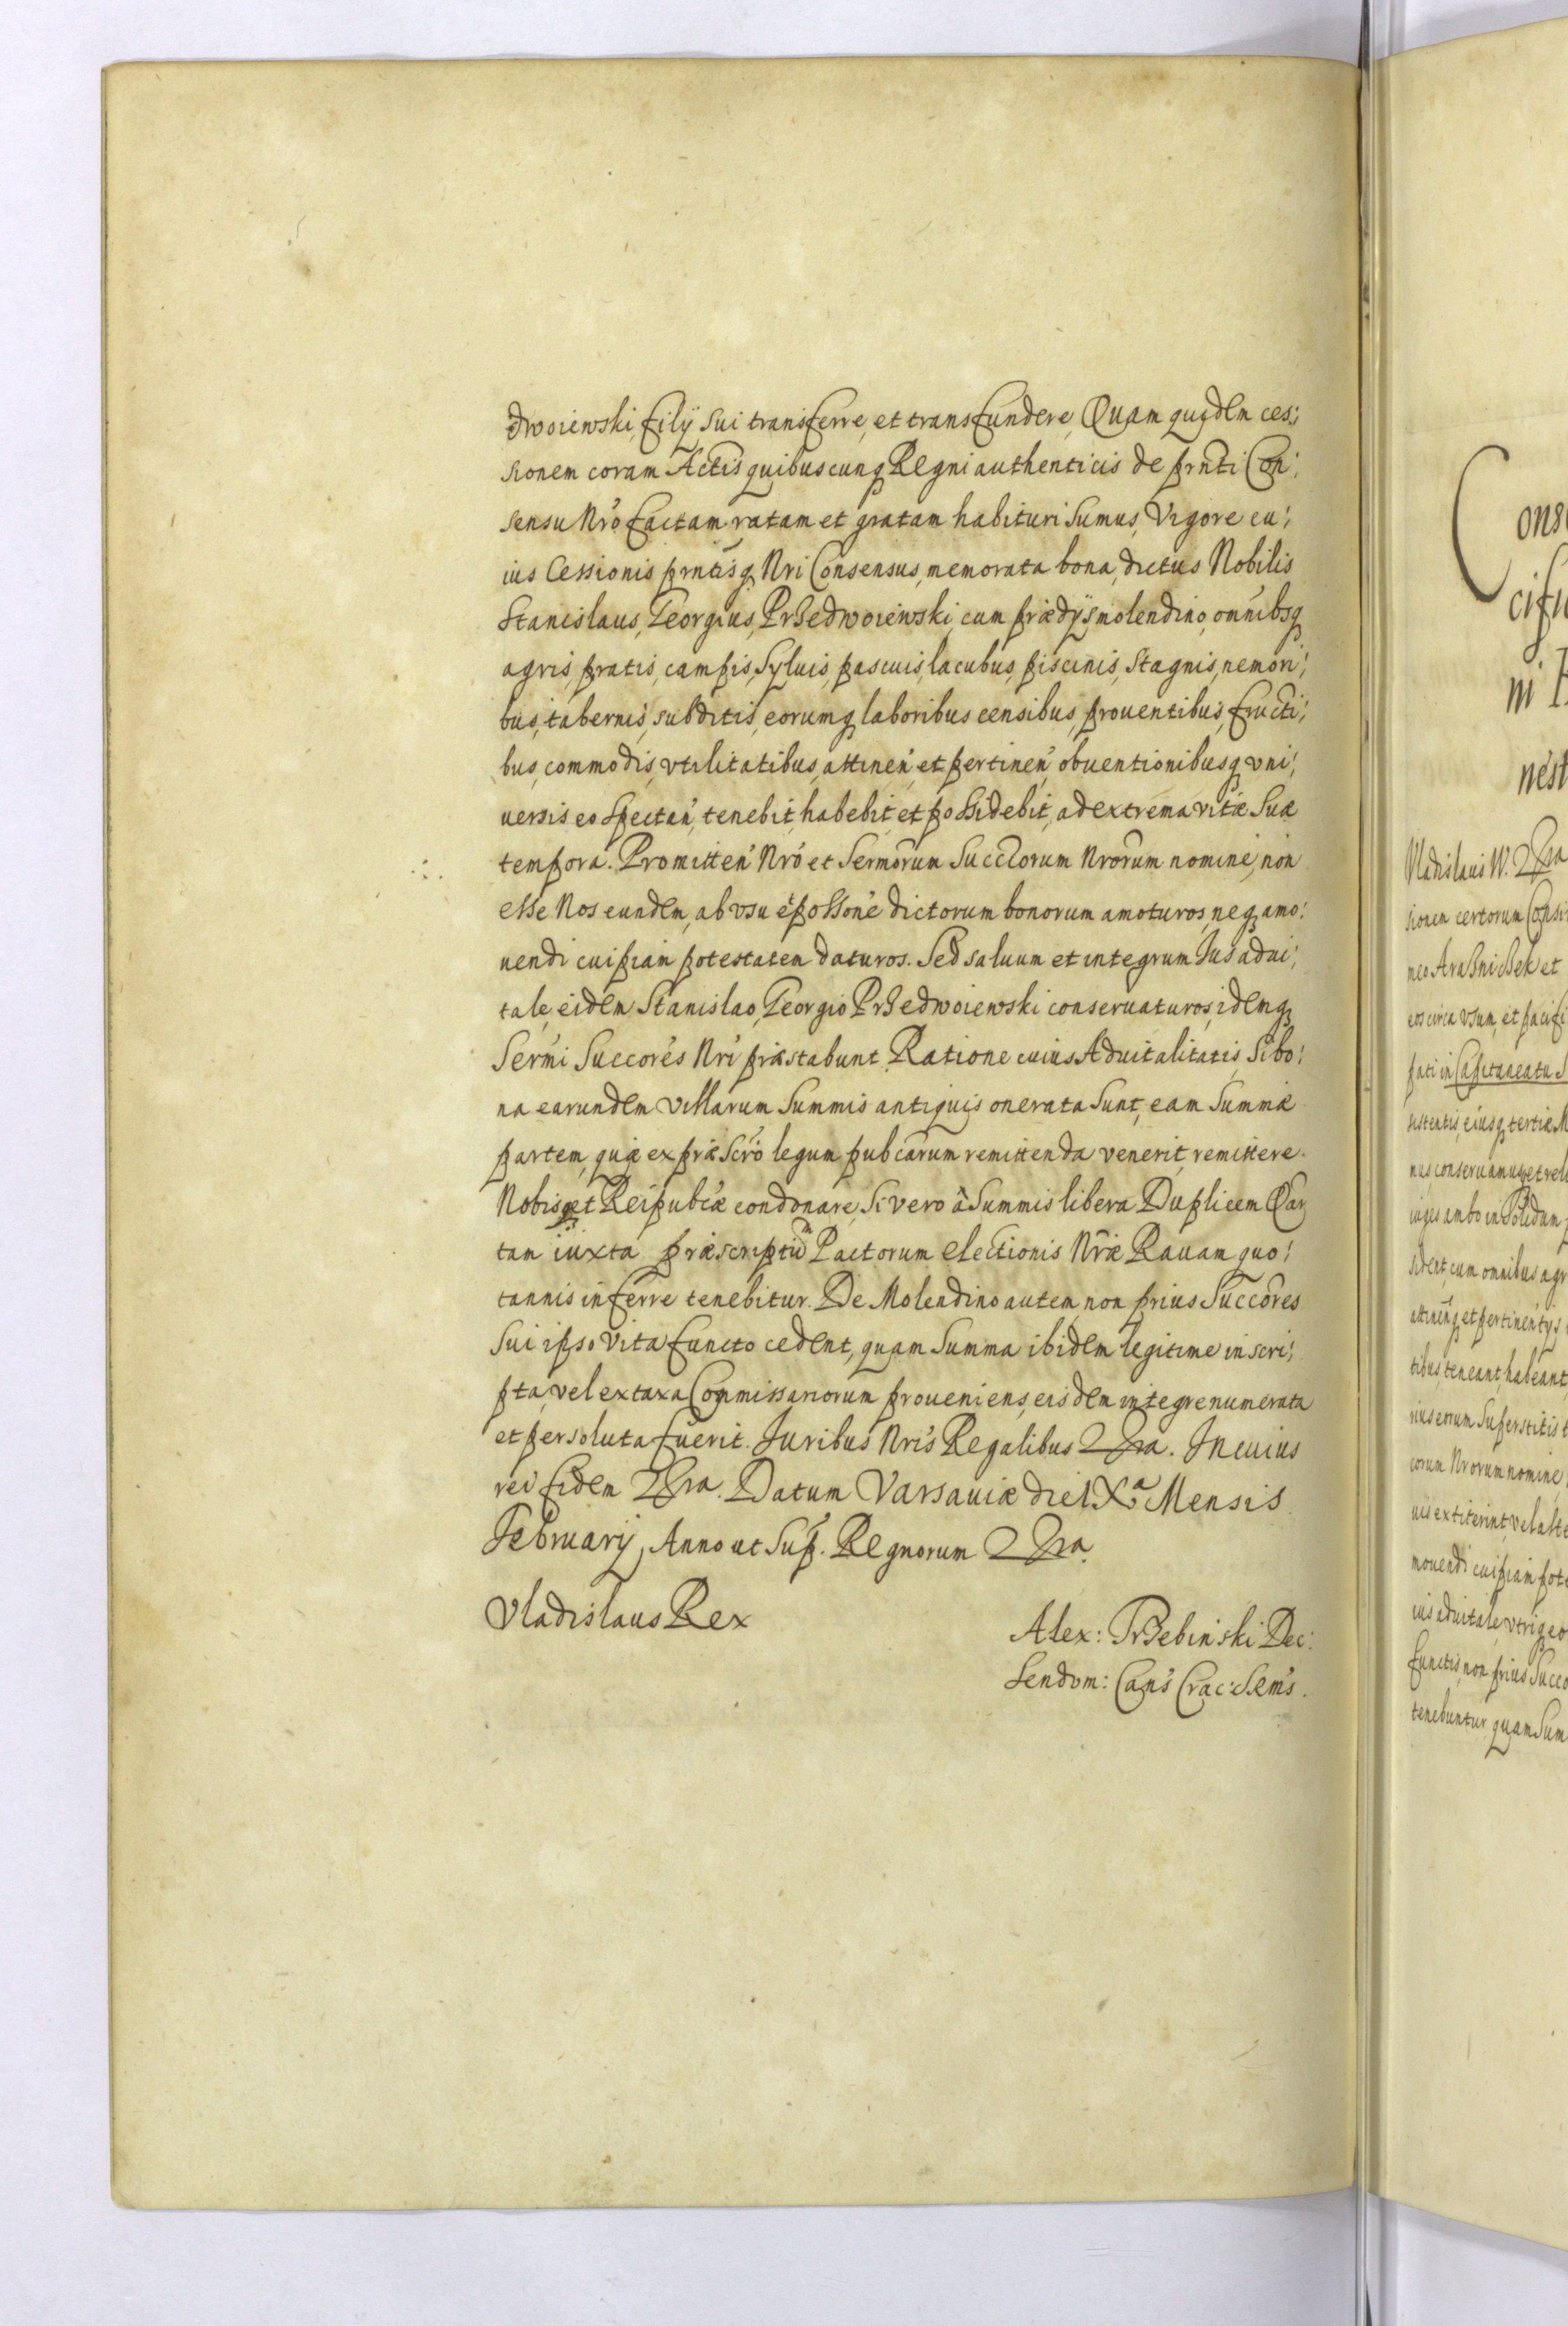 dwoiewski, filÿ sui transferre, et transfundere, Quam quidem ces:
sionem coram Actis quibuscunq Regni authenticis de prnti Con:
sensu Nro factam ratam et gratam habituri sumus, Vigore cu:
ius Cessionis prntisq Nri Consensus, memorata bona, dictus Nobilis
Stanislaus, Georgius, Przedwoiewski, cum prædÿs, molendino, omnibsq
agris, pratis, campis, Syluis, pascuis, lacubus, piscinis, stagnis, nemori:
bus, tabernis, subditis, eorumq laboribus censibus, prouentibus, fructi:
bus, commodis, vtilitatibus, attinen, et pertinen, obuentionibusq vni:
uersis eo spectan, tenebit, habebit, et possidebit, ad extrema vitæ suæ
tempora. Promitten Nro et Sermorum Succrorum Nrorum nomine, non
esse Nos eundem, ab vsu et possone dictorum bonorum amoturos, neq amo:
uendi cuipiam potestatem daturos. Sed saluum et integrum Ius adui:
tale, eidem Stanislao, Georgio Przedwoiewski conseruaturos, idemq
Sermi Succores Nri præstabunt. Ratione cuius Aduitalitatis, si bo:
na earundem villarum summis antiquis onerata sunt, eam summæ
partem, quæ ex præscro legum pubcarum remittenda venerit, remittere.
Nobis et Reipubcæ condonare, Si vero à summis libera Duplicem Quar
tam iuxta præscriptum Pactorum electionis Nræ Rauam quo:
tannis inferre tenebitur. De Molendino autem, non prius Succores
sui ipso vita functo cedent, quam summa ibidem legitime inscri:
pta, vel ex taxa Commissariorum proueniens, eisdem integre numerata
et persoluta fuerit. Iuribus Nris Regalibus &ra. In cuius
rei fidem &ra. Datum Varsauiæ die IXa Mensis
Februarÿ, Anno ut sup. Regnorum &ra.
Vladislaus Rex
Alex: Trzebinski Dec:
Sendom: Cans Crac: S.R.ms.
Cons
cisi
ni
nest
Vladislaus W. &ra
sionem certorum Consi
eos circa vsum, et pacifi
pati in Capitaneatu S
sistentis, eiusq tertiæ M
nus, conseruamus, et rel
iuges ambo in solidum p
sident, cum omnibus agr
attinenq et pertinentÿs
tibus, teneant, habeant
rius eorum superstitis t
corum Nrorum nomine,
uis extiterint, vel alte
mouendi cuipiam pote
ius aduitale, vtriq eo
functis, non prius Succo
tenebuntur, quam Sum